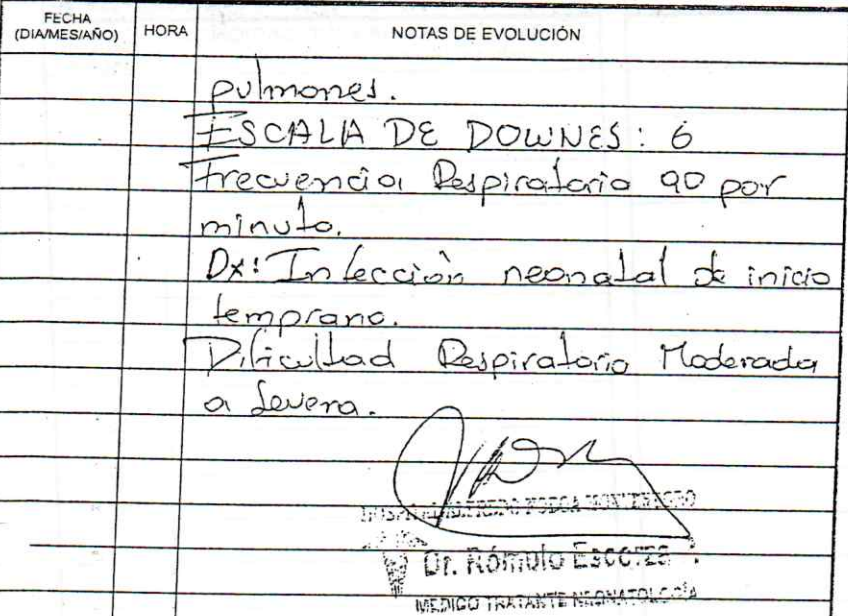 FECHA
(DIA/MES/AÑO)
HORA
NOTAS DE EVOLUCIÓN
pulmones.
ESCALA DE DOWNES: 6
Frecuencia Respiratoria 90 por
minuto.
Dx: Infección neonatal de inicio
temprano.
Dificultad Respiratoria Moderada
a Severa.
Dr. Rómulo
MEDICO TRATANTE NEONATOLOGÍA